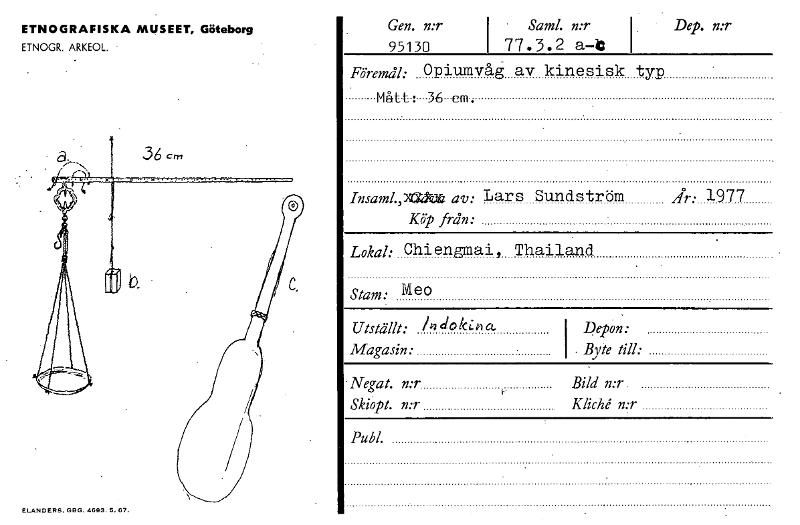 ETNOGRAFISKA MUSEET, Göteborg
ETNOGR. ARKEOL.
a.
36 cm
b.
c.
ELANDERS, GBG. 4693. 5. 67.
Gen. n:r Saml. n:r Dep. n:r
95130 77.3.2 a-c
Föremål: Opiumvåg av kinesisk typ
Mått: 36 cm.
Insaml., av: Lars Sundström År: 1977
Köp från:
Lokal: Chiengmai, Thailand
Stam: Meo
Utställt: Indokina Depon:
Magasin: Byte till:
Negat. n:r Bild n:r
Skiopt. n:r Kliché n:r
Publ.